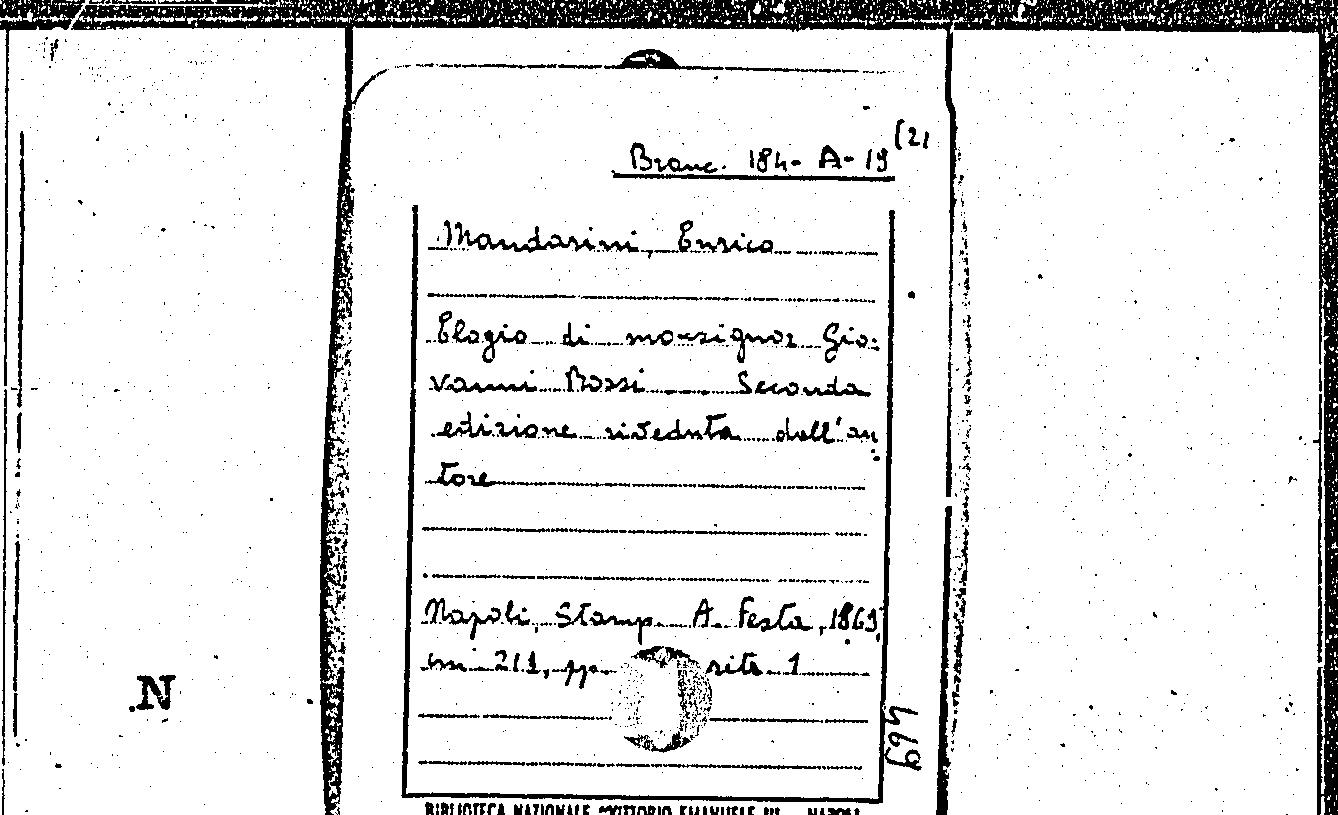 Branc. 184- A- 19 (21
Mandarini, Enrico
Elogio di monsignor Gio:
vanni Rossi Seconda
edizione riveduta dall'au
tore
Napoli, Stamp. A. Festa, 1869,
cm 21, pp. rite. 1
N
469
BIBLIOTECA NAZIONALE "VITTORIO EMANUELE III" NAPOLI